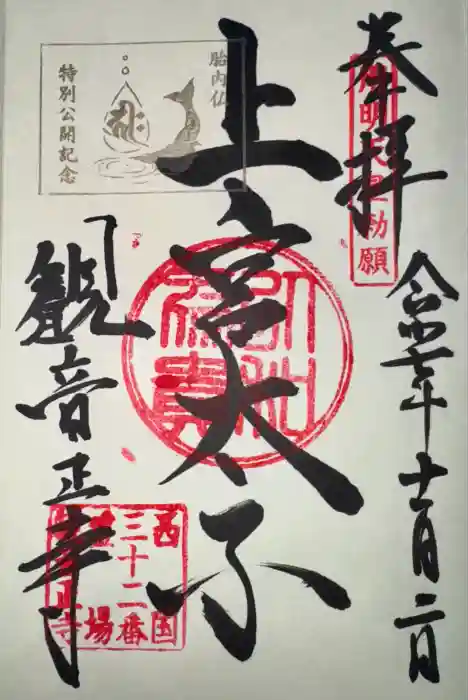 奉拝
令和七年十一月二日
用明天皇勅願
上宮太子
以和為貴
胎内仏
特別公開記念
観音正寺
西国
三十二番
霊場
観音正寺